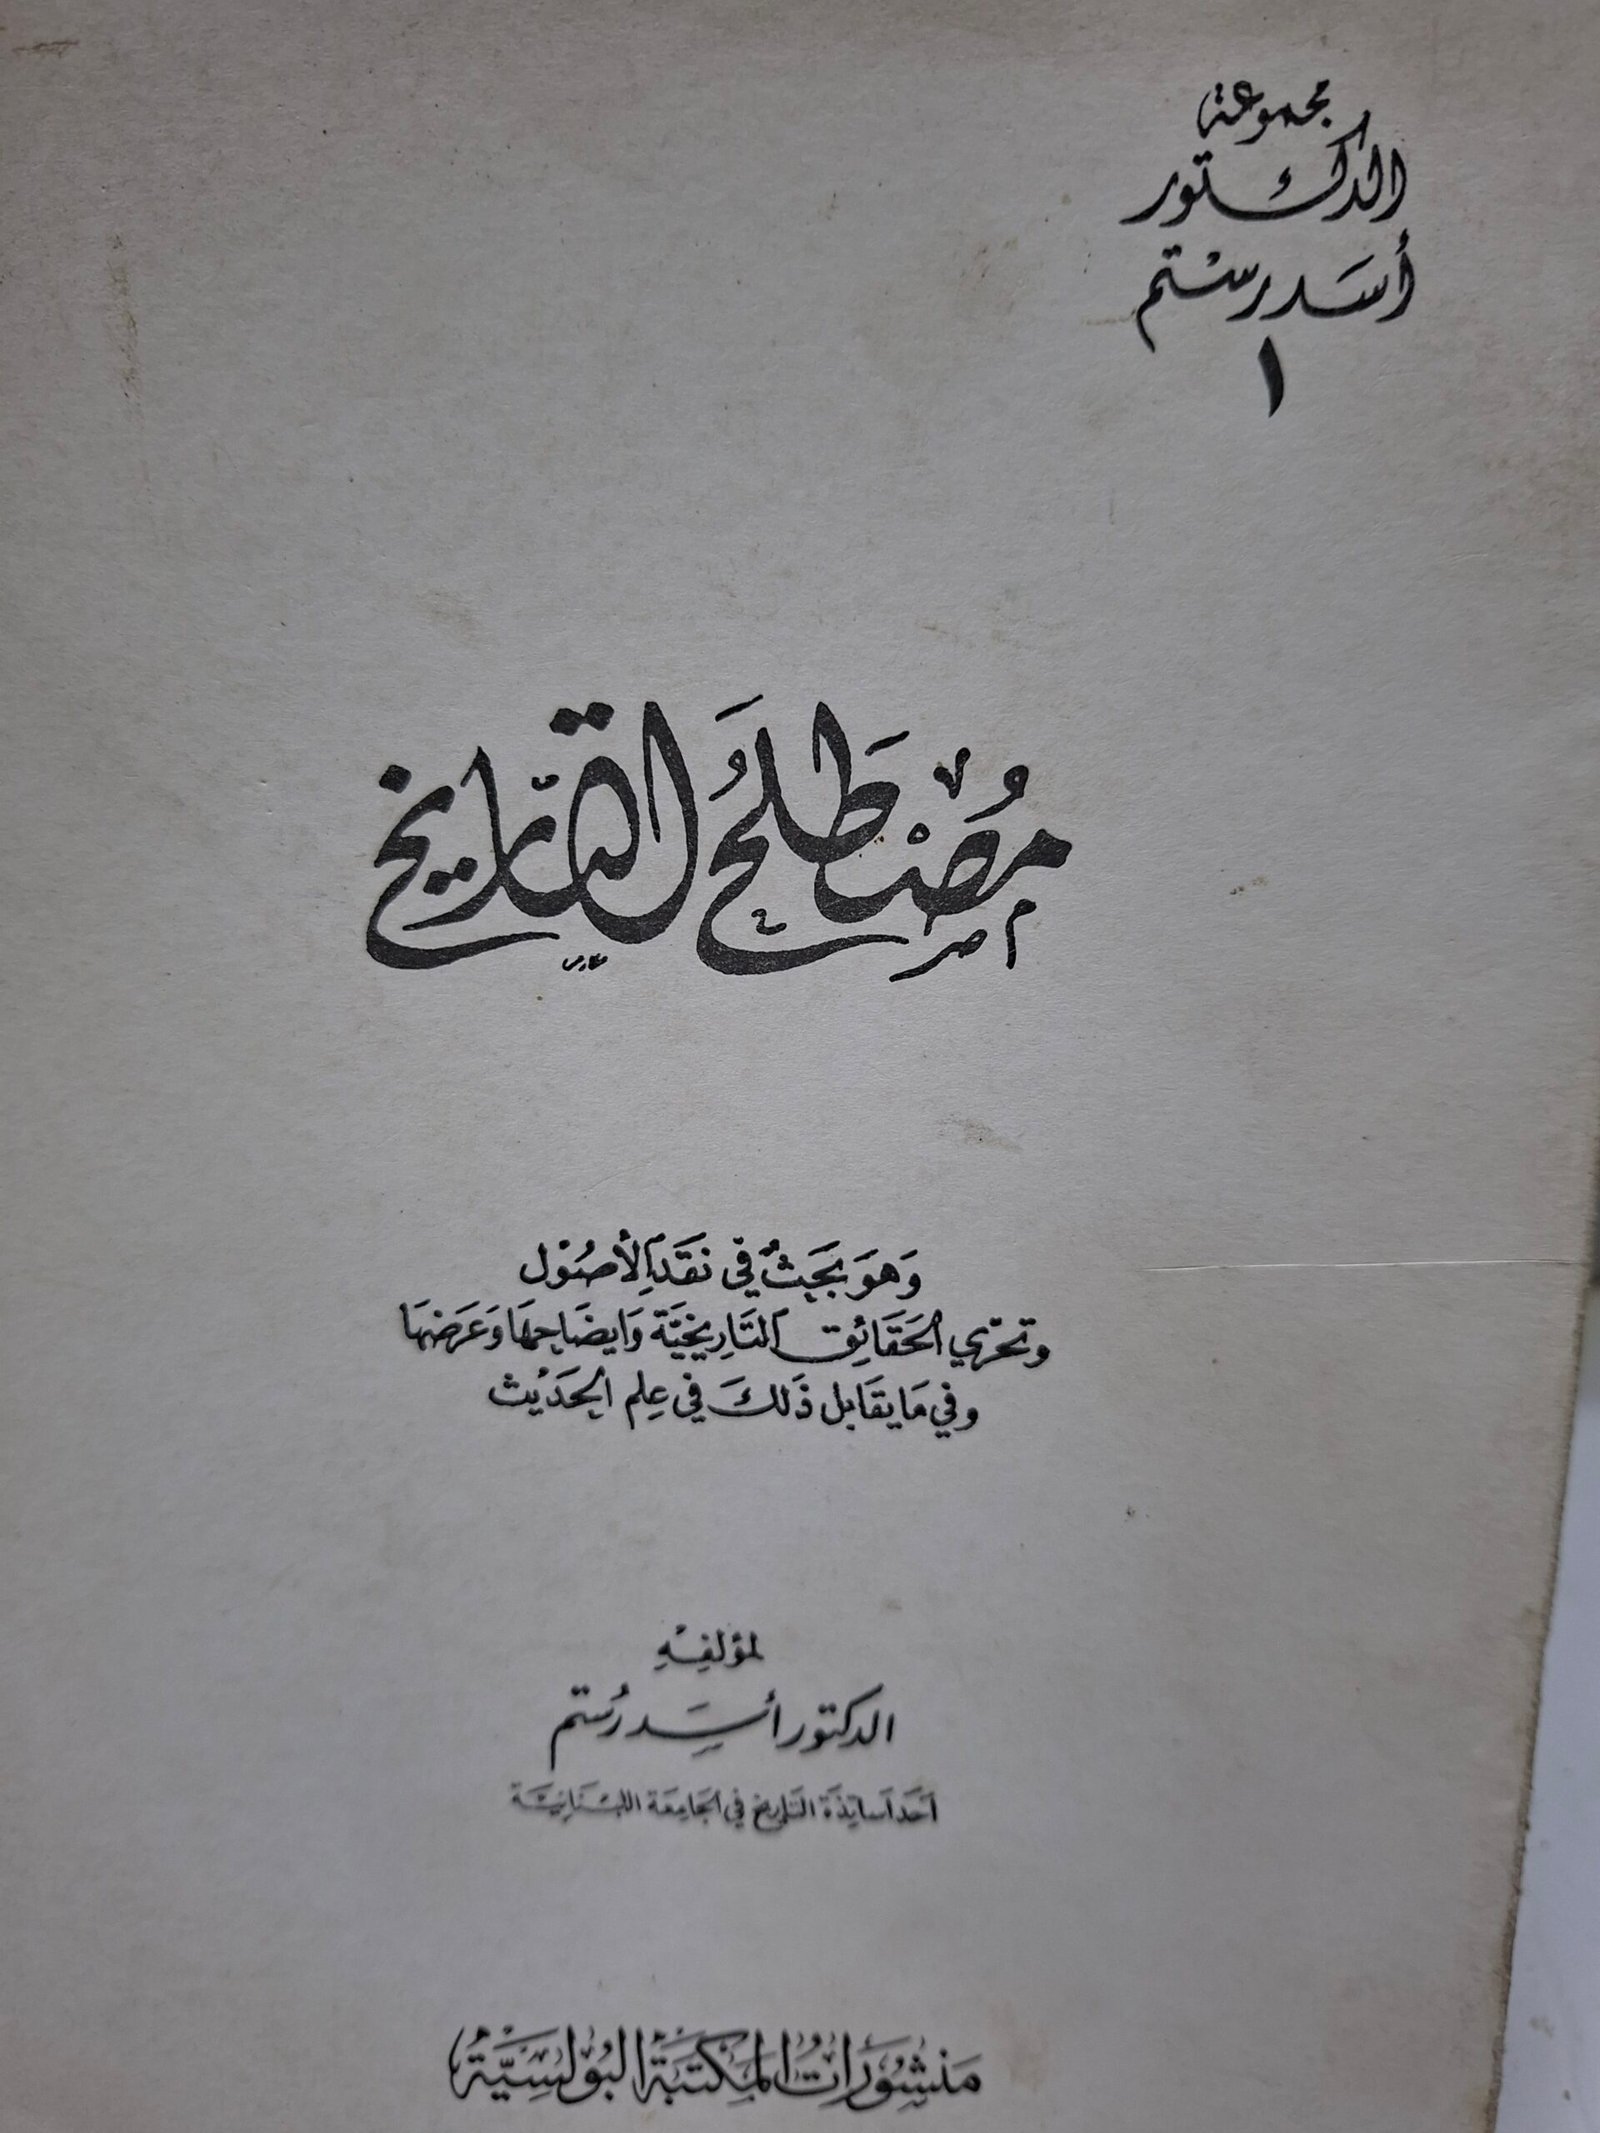 مجموعة
الدكتور
أسد رستم
١
مُصْطَلَحُ التَّارِيخ
وَهوَ بَحَثٌ في نَقَدِ الأصُوْل
وتحرّي الحَقَائِق التَارِيخيَّة وَايضَاحِهَا وَعَرَضِهَا
وفي مَا يقَابل ذَلكَ في عِلم الحَدَيْث
لمؤلفِهِ
الدكتور أسَد رُستم
أحَد أسَاتِذَة التَاريخ في الجَامِعَة اللبْنَانِيَّة
مَنشُورَاتُ المَكتَبَة البُولسِيَّة